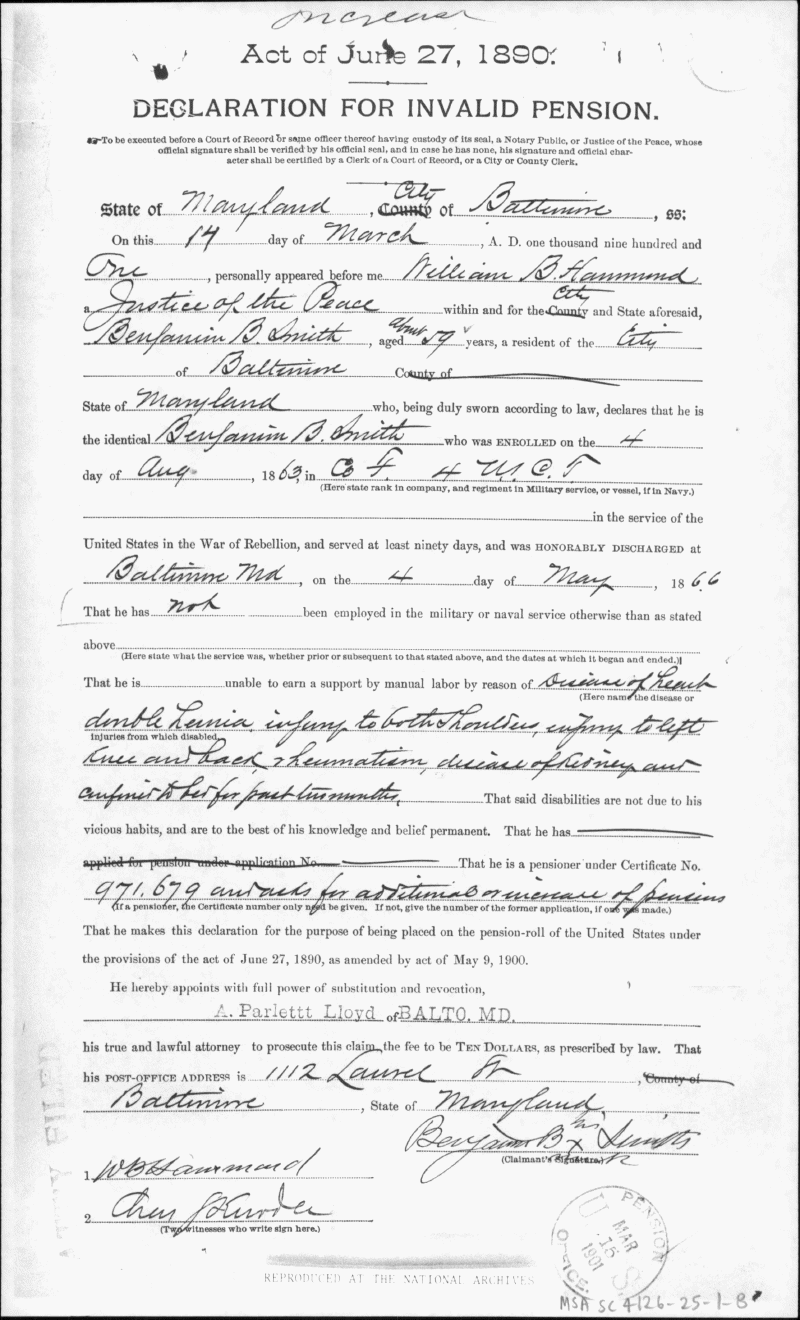 Increase
Act of June 27, 1890.
DECLARATION FOR INVALID PENSION.
To be executed before a Court of Record or some officer thereof having custody of its seal, a Notary Public, or Justice of the Peace, whose
official signature shall be verified by his official seal, and in case he has none, his signature and official char-
acter shall be certified by a Clerk of a Court of Record, or a City or County Clerk.
State of Maryland, County City of Baltimore, ss:
On this 14 day of March, A. D. one thousand nine hundred and
One, personally appeared before me William B. Hammond
a Justice of the Peace within and for the County City and State aforesaid,
Benjamin B. Smith, aged about 59 years, a resident of the City
of Baltimore County of
State of Maryland who, being duly sworn according to law, declares that he is
the identical Benjamin B. Smith who was ENROLLED on the 4
day of Aug, 1863, in Co F. 4 U.S.C.T.
(Here state rank in company, and regiment in Military service, or vessel, if in Navy.)
in the service of the
United States in the War of Rebellion, and served at least ninety days, and was HONORABLY DISCHARGED at
Baltimore Md, on the 4 day of May, 1866
That he has not been employed in the military or naval service otherwise than as stated
above
(Here state what the service was, whether prior or subsequent to that stated above, and the dates at which it began and ended.)
That he is unable to earn a support by manual labor by reason of Disease of heart
(Here name the disease or
double hernia, injury to both shoulders, injury to left
injuries from which disabled.
knee and back, rheumatism, disease of kidney and
confined to bed for past two months, That said disabilities are not due to his
vicious habits, and are to the best of his knowledge and belief permanent. That he has
applied for pension under application No. That he is a pensioner under Certificate No.
971,679 and asks for additional or increase of pension
(If a pensioner, the Certificate number only need be given. If not, give the number of the former application, if one was made.)
That he makes this declaration for the purpose of being placed on the pension-roll of the United States under
the provisions of the act of June 27, 1890, as amended by act of May 9, 1900.
He hereby appoints with full power of substitution and revocation,
A. Parlettt Lloyd of BALTO. MD.
his true and lawful attorney to prosecute this claim, the fee to be TEN DOLLARS, as prescribed by law. That
his POST-OFFICE ADDRESS is 1112 Laurel St, County of
Baltimore, State of Maryland.
Benjamin B his x Smith
(Claimant's Signature.)
1 W B Hammond
2 Chas J
(Two witnesses who write sign here.)
U.S. PENSION OFFICE. MAR 15 1901
REPRODUCED AT THE NATIONAL ARCHIVES
MSA SC 4126-25-1-B